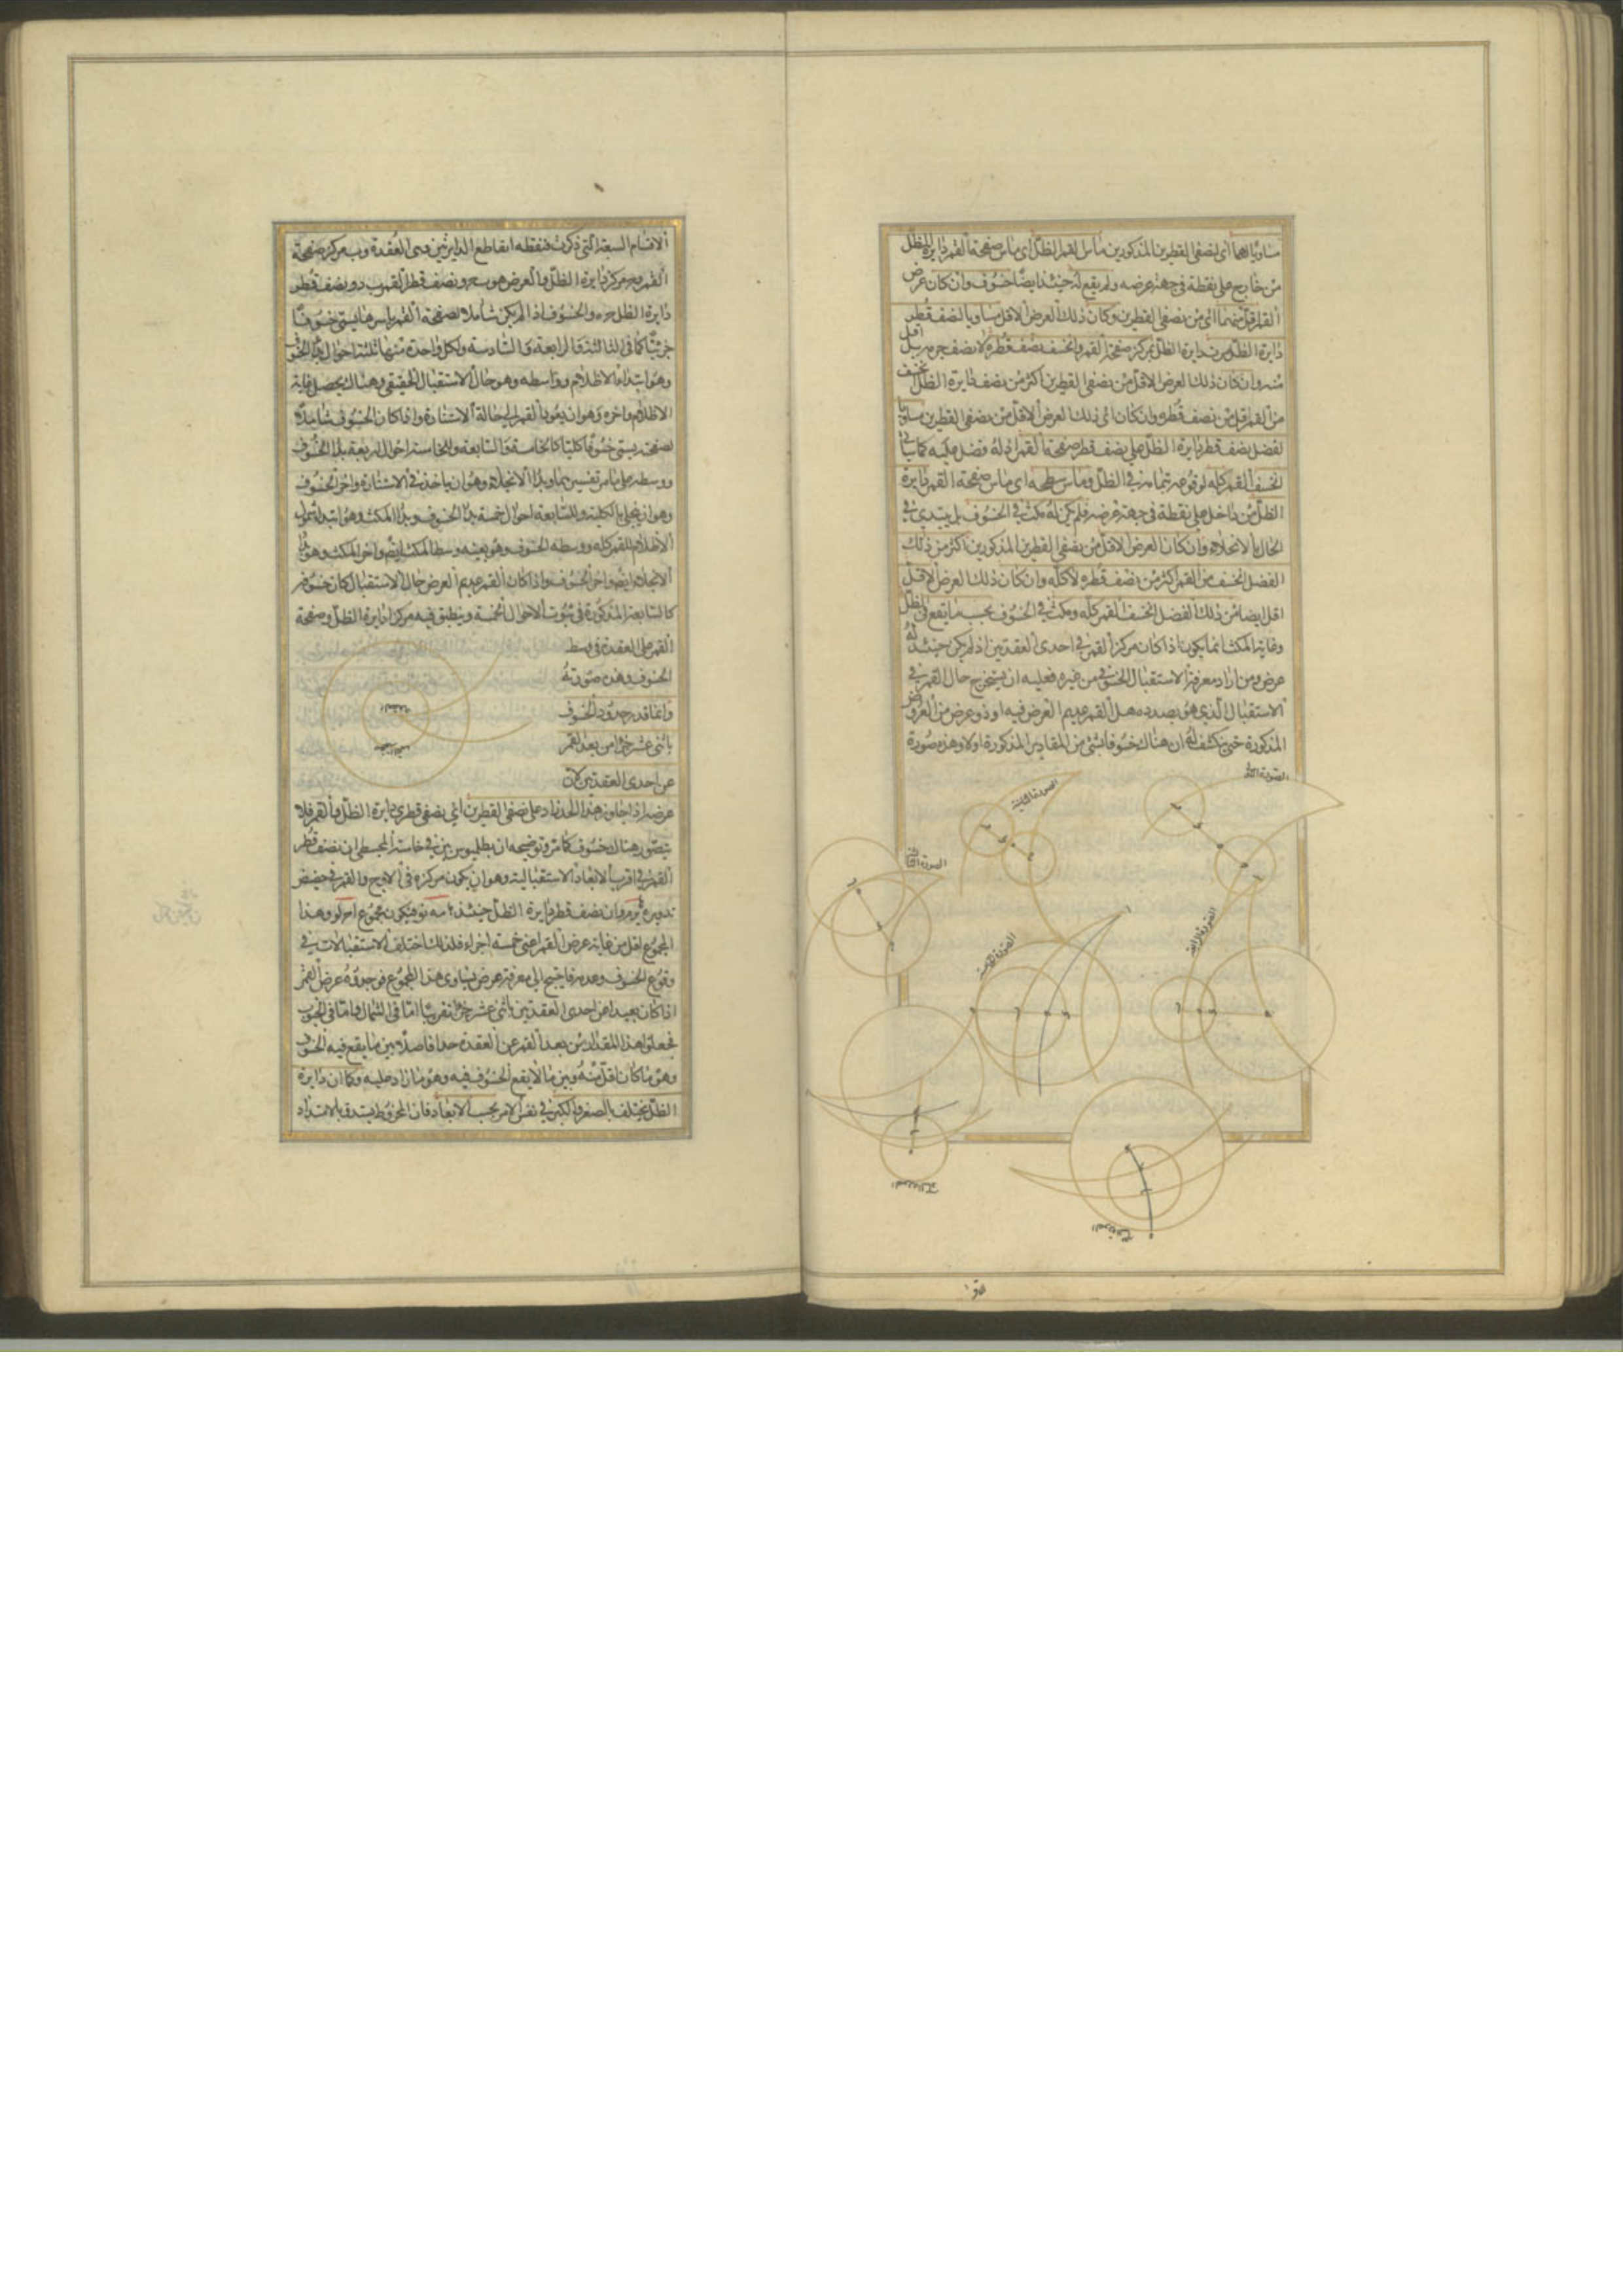 مساويا لهما اى لنصفى القطرين المذكورين ماس القمر الظل اى ماس صفحة القمر دايرة الظل
من خارج على نقطة فى جهة عرضه ولم يقع له حينئذ ايضا خسوف وان كان عرض
القمر اقل منهما اى من نصفى القطرين وكان ذلك العرض الاقل مساويا لنصف قطر
دايرة الظل مرت دايرة الظل بمركز صفحة القمر وانخسف نصف قطره لا نصف جرمه بل اقل
منه وان كان ذلك العرض الاقل من نصفى القطرين اكثر من نصف دايرة الظل انخسف
من القمر اقل من نصف قطره وان كان اى ذلك العرض الاقل من نصفى القطرين مساويا
لفضل نصف قطر دايرة الظل على نصف قطر صفحة القمر اذ له فضل عليه كما ياتى
انخسف القمر كله لوقوعه بتمامه فى الظل وماس سطحه اى ماس صفحة القمر دايرة
الظل من داخل على نقطة فى جهة عرضه فلم يكن له مكث فى الخسوف بل يبتدى فى
الحال بالانجلاء وان كان العرض الاقل من نصفى القطرين المذكورين اكثر من ذلك
الفضل انخسف من القمر اكثر من نصف قطره لا كله وان كان ذلك العرض الاقل
اقل ايضا من ذلك الفضل انخسف القمر كله ومكث فى الخسوف بحسب ما يقع فى الظل
وغاية المكث انما يكون اذا كان مركز القمر فى احدى العقدتين اذ لم يكن حينئذ له
عرض ومن اراد معرفة الاستقبال الخسوفى من غيره فعليه ان يستخرج حال القمر فى
الاستقبال الذى هو بصدده هل القمر عديم العرض فيه او ذو عرض من العروض
المذكورة حتى ينكشف له ان هناك خسوفا بشئ من المقادير المذكورة اولا وهذه صورة
الصورة الثانية
الصورة الثالثة
الصورة الرابعة
الصورة الخامسة
الاقسام السبعة التى ذكرت فنقطة ا تقاطع الدايرتين وهى العقدة و ب مركز صفحة
القمر و ج مركز دايرة الظل والعرض هو ب ج ونصف قطر القمر ب د ونصف قطر
دايرة الظل ج ه والخسوف اذا لم يكن شاملا لصفحة القمر باسرها يسمى خسوفا
جزئيا كما فى الثالثة والرابعة والسادسة ولكل واحدة منها ثلثة احوال بدء الخسوف
وهو ابتداء الاظلام وواسطه وهو حال الاستقبال الحقيقى وهناك يحصل غاية
الاظلام واخره وهو ان يعود القمر الى حالة الاستنارة واذا كان الخسوف شاملا
لصفحته يسمى خسوفا كليا كالخامسة والسابعة وللخامسة احوال اربعة بدء الخسوف
ووسطه على ما مر تفسيرهما وبدء الانجلاء وهو ان ياخذ فى الاستنارة واخر الخسوف
وهو ان ينجلى بالكلية وللسابعة احوال خمسة بدء الخسوف وبدء المكث وهو ابتداء شمول
الاظلام للقمر كله ووسطه الخسوف وهو بعينه وسط المكث ايضا واخر المكث وهو بدء
الانجلاء ايضا واخر الخسوف واذا كان القمر عديم العرض حال الاستقبال كان خسوفه
كالسابعة المذكورة فى ثبوت الاحوال الخمسة وينطبق فيه مركزا دايرة الظل وصفحة
القمر على العقدة فى وسط
الخسوف وهذه صورته
وانما قدر حدود الخسوف
باثنى عشر جزءا من بعد القمر
عن احدى العقدتين لان
عرضه اذا جاوز هذا الحد زاد على نصفى القطرين اى نصفى قطرى دايرة الظل والقمر فلا
يتصور هناك خسوف كما مر وتوضيحه ان بطليوس بين فى خامسة المجسطى ان نصف قطر
القمر فى اقرب الابعاد الاستقبالية وهو ان يكون مركزه فى الاوج والقمر فى حضيض
المجموع اقل من غاية عرض القمر اعنى خمسة اجزاء فلذلك اختلف الاستقبالات فى
وقوع الخسوف وعدمه فاحتيج الى معرفة عرض يساوى هذا المجموع فوجدوه عرض القمر
اذا كان بعيدا عن احدى العقدتين باثنى عشر جزءا تقريبا اما فى الشمال واما فى الجنوب
فجعلوا هذا المقدار من بعد القمر عن العقدة حدا فاصلا بين ما يقع فيه الخسوف
وهو ما كان اقل منه وبين ما لا يقع الخسوف فيه وهو ما زاد عليه وكما ان دايرة
الظل يختلف بالصغر والكبر فى نفس الامر بحسب الابعاد فان المخروط يستدق بالامتداد